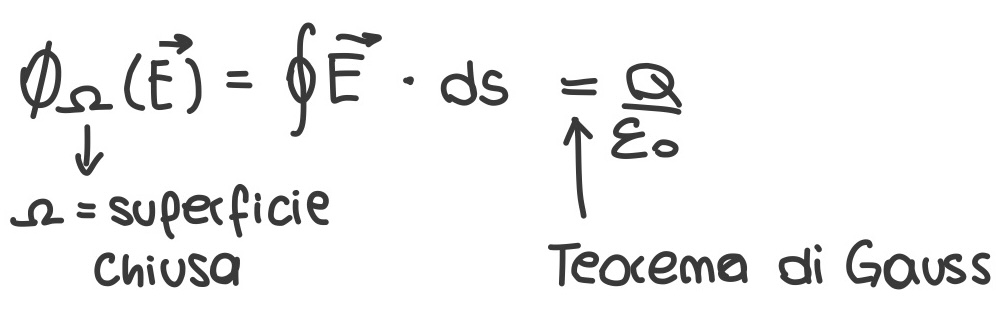 ϕ_Ω (E⃗) = ∮ E⃗ · ds = Q/ε₀
Ω = superficie
chiusa
Teorema di Gauss